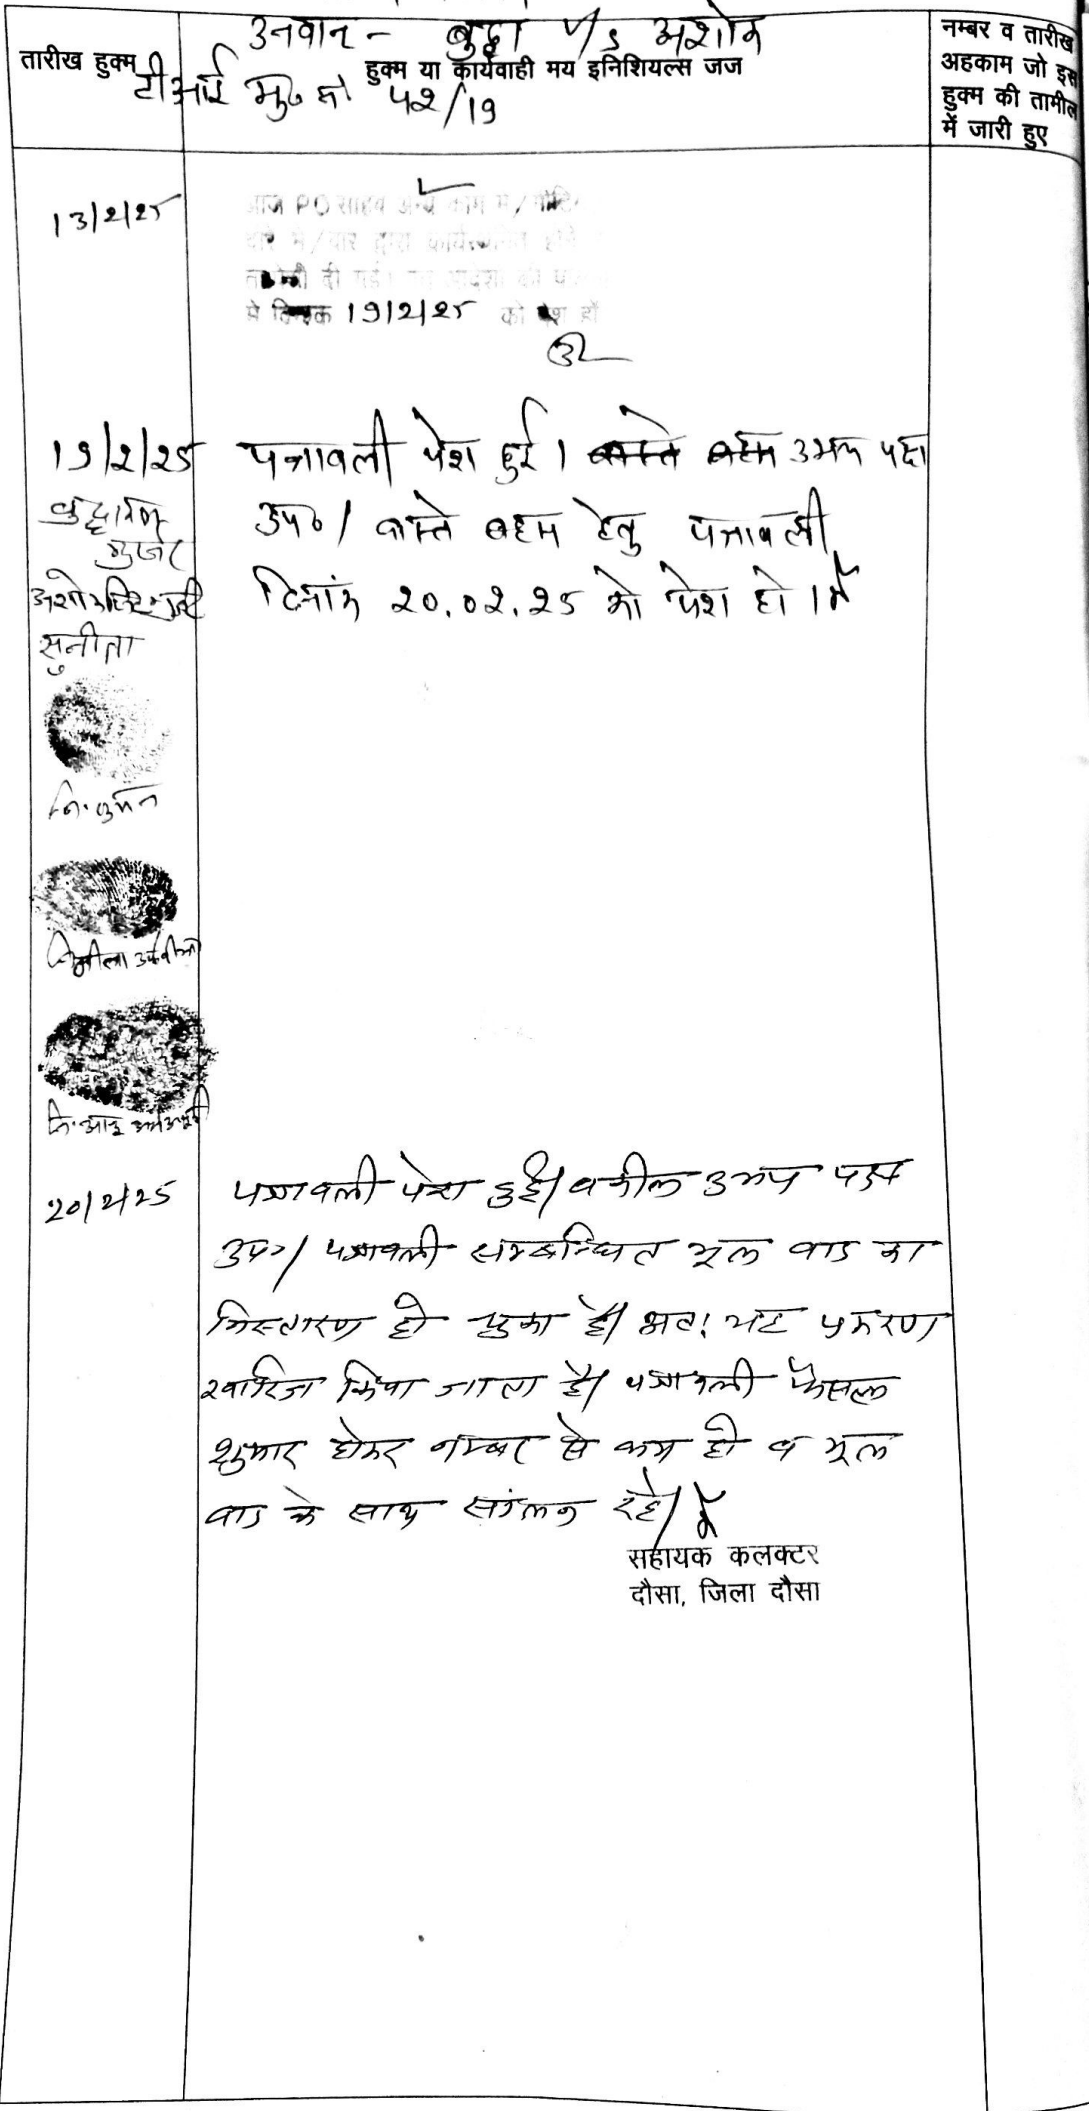 उनवान - बुद्धा V/S अशोक
तारीख हुक्म
हुक्म या कार्यवाही मय इनिशियल्स जज
टीआई मु० न० 52/19
नम्बर व तारीख
अहकाम जो इस
हुक्म की तामील
में जारी हुए
13/2/25
आज PO साहब अन्य काम में/मीटिंग
बारे में/बार द्वारा कार्य
दी गई। आदेश की
में दिनांक 19/2/25 को पेश हों
19/2/25 पत्रावली पेश हुई। वास्ते बहस उभय पक्ष
उप०/ वास्ते बहस हेतु पत्रावली
दिनांक 20.02.25 को पेश हो।
बुद्धाराम
गुर्जर
सुनीता
20/2/25 पत्रावली पेश हुई/ वकील उभय पक्ष
उप०/ पत्रावली सम्बन्धित मूल वाद का
निस्तारण हो चुका है/ अतः यह प्रकरण
खारिज किया जाता है/ पत्रावली फैसल
शुमार होकर नम्बर से कम हो व मूल
वाद के साथ संलग्न रहे/
सहायक कलक्टर
दौसा, जिला दौसा